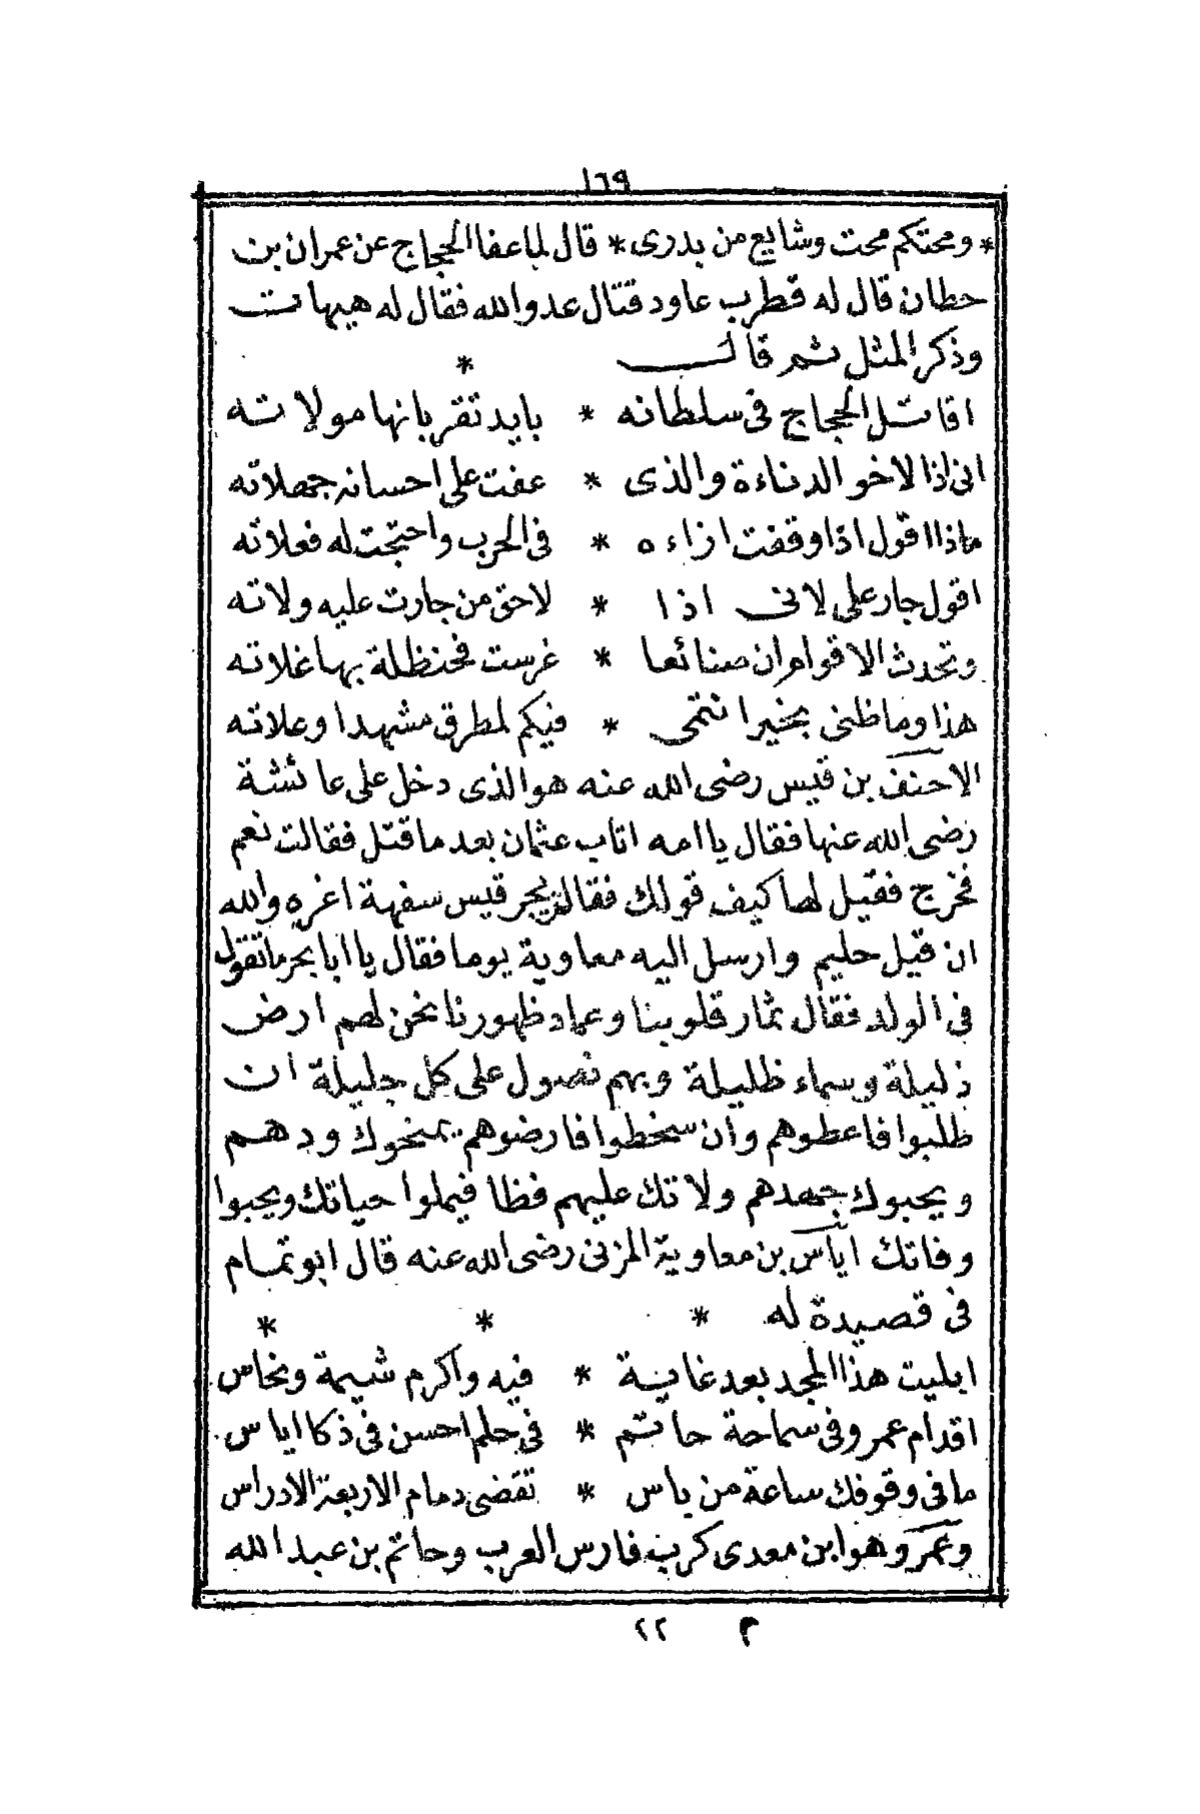 ١٦٩
* ومحتكم محت وشايع من يدرى * قال لما عفا الحجاج عن عمران بن
حطان قال له قطرب عاود قتال عدو الله فقال له هيهات
وذكر المثل ثم قال *
اقاتل الحجاج فى سلطانه * بايد تقر بانها مولاته
انى اذا لاخو الدناءة والذى * عفت على احسانه جهلاته
ماذا اقول اذا وقفت ازاءه * فى الحرب واحتجت له فعلاته
اقول جار على لانى اذا * لاحق من جارت عليه ولاته
وتحدث الاقوام ان صنائعا * غرست فحنظلة بها غلاته
هذا وما ظنى بخير انتمى * فيكم لمطرق مشهدا وعلاته
الاحنف بن قيس رضى الله عنه هو الذى دخل على عائشة
رضى الله عنها فقال يا امه اتاب عثمان بعد ما قتل فقالت نعم
فخرج فقيل لها كيف قولك فقالت يجر قيس سفهة اغره والله
ان قيل حليم وارسل اليه معاوية يوما فقال يا ابا بحر ما تقول
فى الولد فقال ثمار قلوبنا وعماد ظهورنا نحن لهم ارض
ذليلة وسماء ظليلة وبهم نصول على كل جليلة ان
طلبوا فاعطوهم وان سخطوا فارضوهم يمنحوك ودهم
ويحبوك جهدهم ولا تك عليهم فظا فيملوا حياتك ويحبوا
وفاتك اياس بن معاوية المزنى رضى الله عنه قال ابو تمام
فى قصيدة له * * *
ابليت هذا المجد بعد غاية * فيه واكرم شيمة ونحاس
اقدام عمرو فى سماحة حاتم * فى حلم احسن فى ذكا اياس
ما فى وقوفك ساعة من باس * تقضى دمام الاربعة الادراس
وعمرو هو ابن معدى كرب فارس العرب وحاتم بن عبد الله
م ٢٢